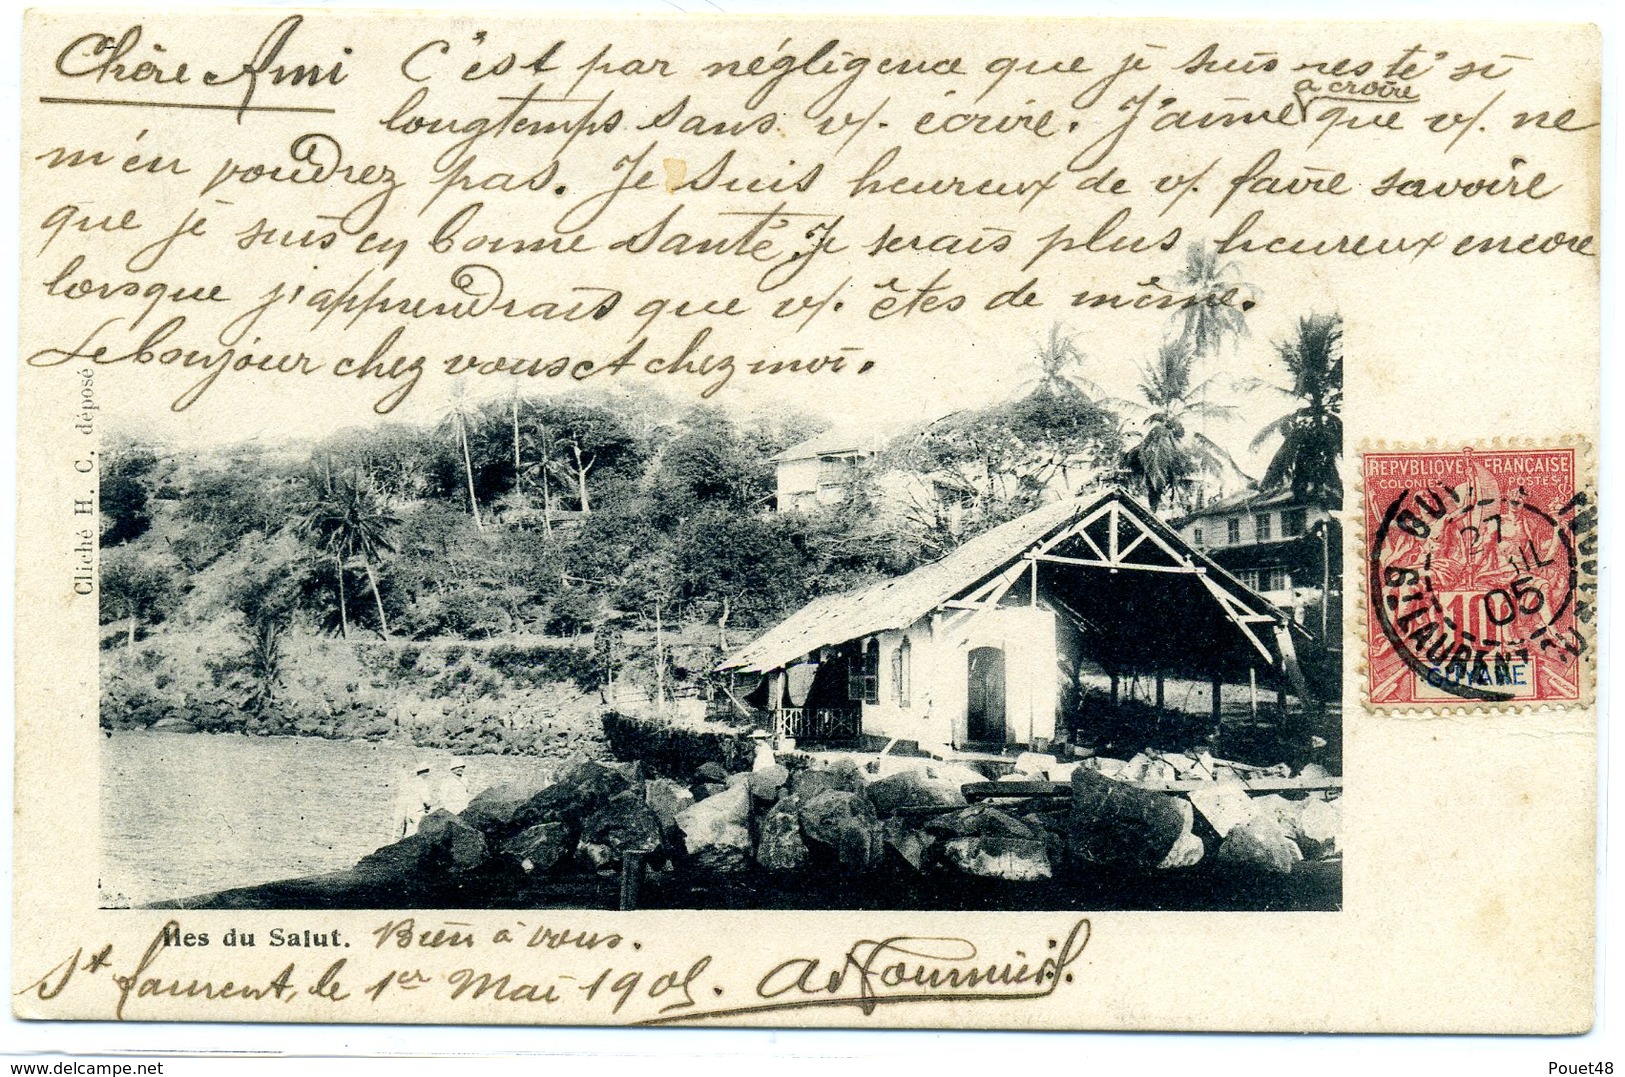 Chère Ami C'est par négligence que je suis resté si
longtemps sans v/. écrire. J'aime à croire que v/. ne
m'en voudrez pas. Je suis heureux de v/. faire savoire
que je suis en bonne santé, Je serais plus heureux encore
lorsque j'apprendrais que v/. êtes de même.
Le bonjour chez vous et chez moi.
Cliché H. C. déposé
REPVBLIQVE FRANÇAISE
COLONIES POSTES
10c
GUYANE
27
JUIL
05
ST LAURENT
Iles du Salut. Bien à vous.
St Laurent, le 1er Mai 1905.
Pouet48